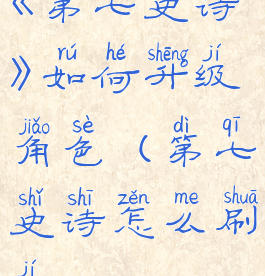 《第七史诗
rú hé shēng jí
》如何升级
jiǎo sè dì qī
角色（第七
shǐ shī zěn me shuā
史诗怎么刷
jí